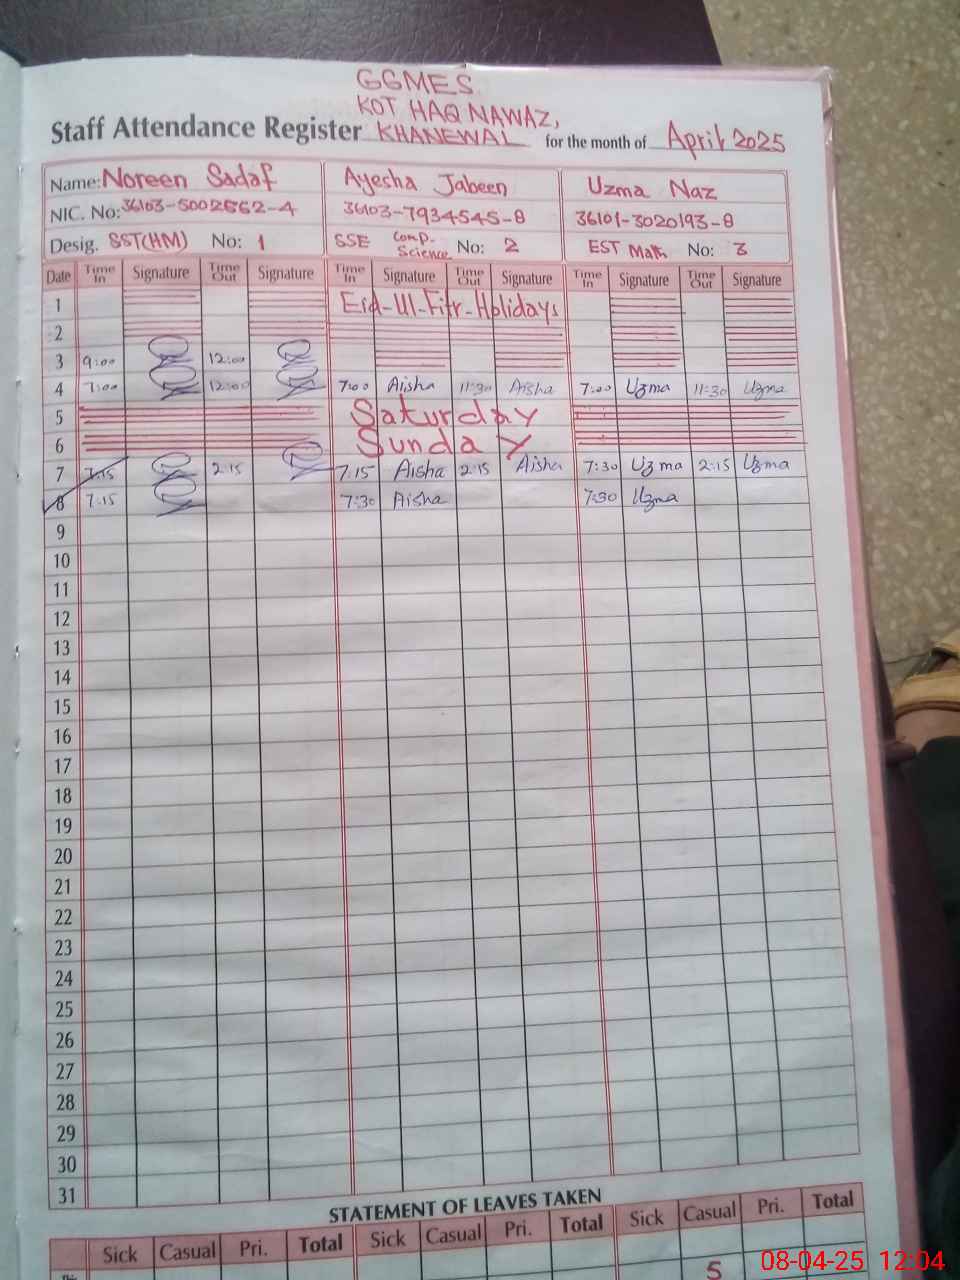 GGMES
KOT HAQ NAWAZ,
Staff Attendance Register KHANEWAL for the month of April 2025
Name: Noreen Sadaf Ayesha Jabeen Uzma Naz
NIC. No: 36103-5002562-4 36103-7934545-8 36101-3020193-8
Desig. SST(HM) No: 1 SSE Comp. Science No: 2 EST Math No: 3
Date Time In Signature Time Out Signature Time In Signature Time Out Signature Time In Signature Time Out Signature
1 Eid-Ul-Fitr-Holidays
2
3 9:00 12:00
4 7:00 12:00 7:00 Aisha 11:30 Aisha 7:00 Uzma 11:30 Uzma
5 Saturday
6 Sunday
7 7:15 2:15 7:15 Aisha 2:15 Aisha 7:30 Uzma 2:15 Uzma
8 7:15 7:30 Aisha 7:30 Uzma
9
10
11
12
13
14
15
16
17
18
19
20
21
22
23
24
25
26
27
28
29
30
31
STATEMENT OF LEAVES TAKEN
Sick Casual Pri. Total Sick Casual Pri. Total Sick Casual Pri. Total
5
08-04-25 12:04